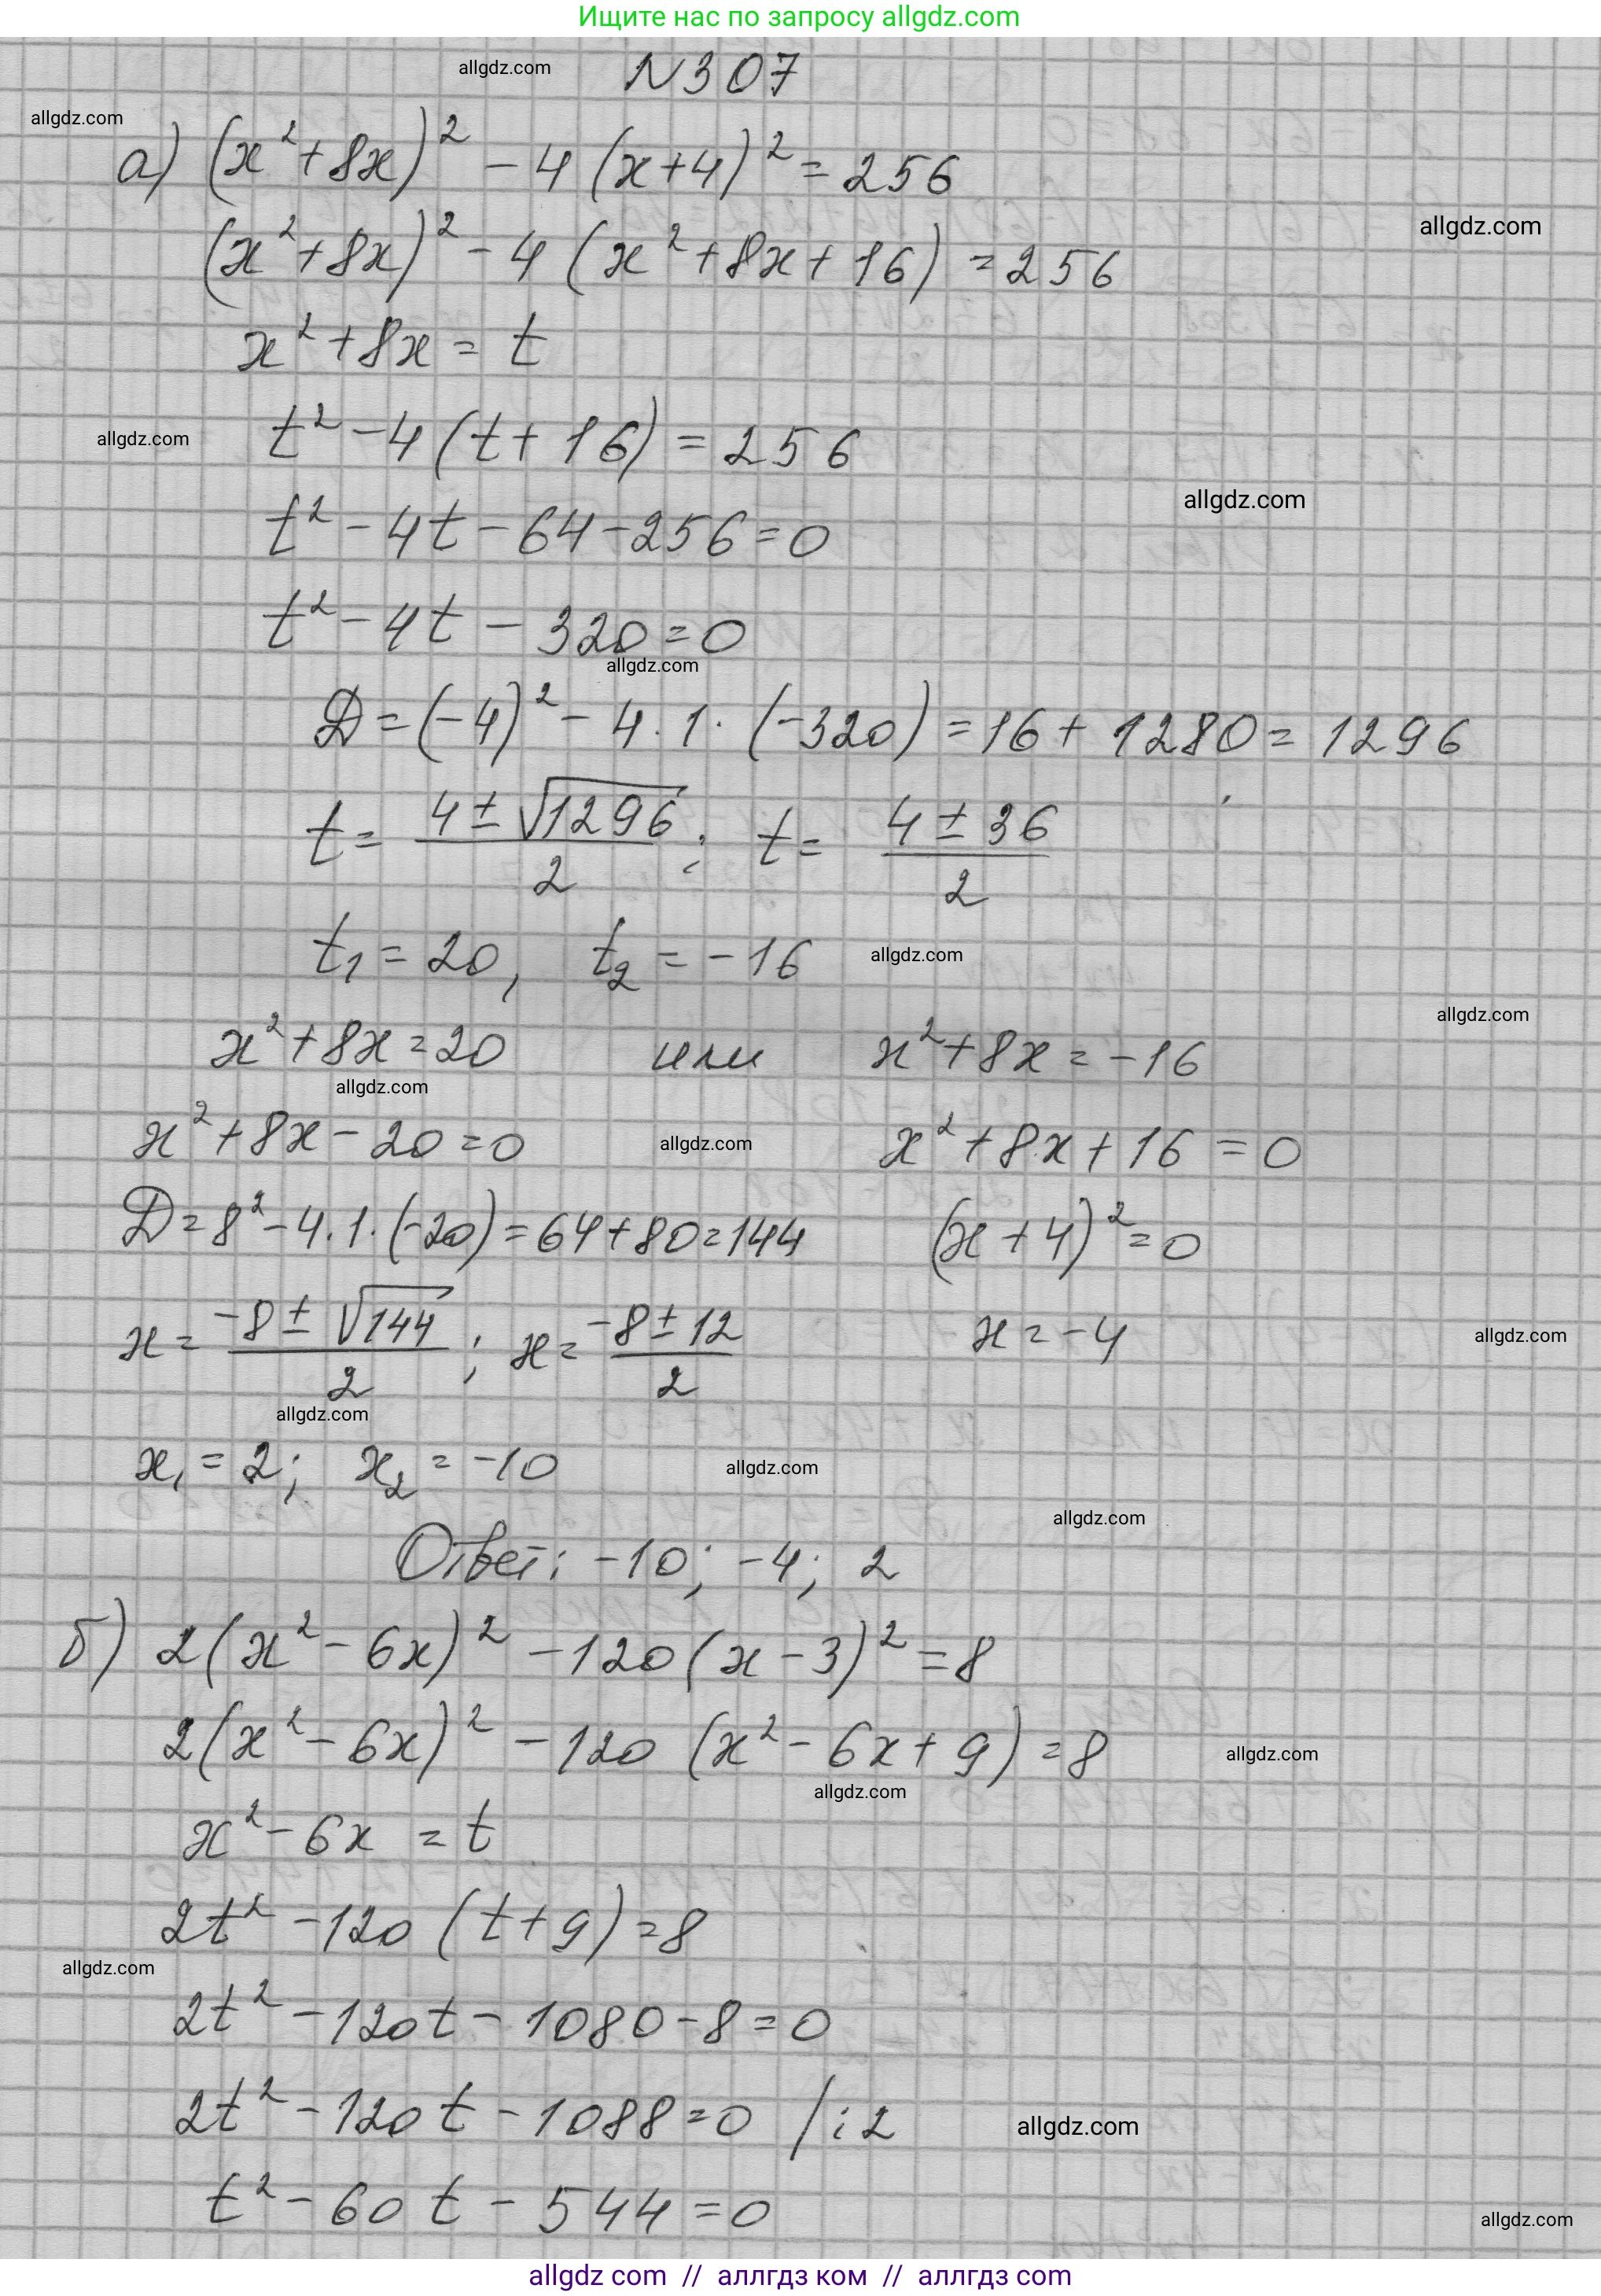 Ищите нас по запросу allgdz.com
allgdz.com
N 307
allgdz.com
а) (x² + 8x)² - 4 (x+4)² = 256
allgdz.com
(x² + 8x)² - 4 (x² + 8x + 16) = 256
x² + 8x = t
allgdz.com
t² - 4 (t + 16) = 256
allgdz.com
t² - 4t - 64 - 256 = 0
t² - 4t - 320 = 0
allgdz.com
D = (-4)² - 4 · 1 · (-320) = 16 + 1280 = 1296
t = (4 ± √1296)/2 ; t = (4 ± 36)/2
t₁ = 20, t₂ = -16
allgdz.com
allgdz.com
x² + 8x = 20 или x² + 8x = -16
allgdz.com
x² + 8x - 20 = 0 allgdz.com x² + 8x + 16 = 0
D = 8² - 4 · 1 · (-20) = 64 + 80 = 144 (x + 4)² = 0
x = (-8 ± √144)/2 ; x = (-8 ± 12)/2 x = -4
allgdz.com
allgdz.com
x₁ = 2; x₂ = -10
allgdz.com
allgdz.com
Ответ: -10; -4; 2
б) 2(x² - 6x)² - 120 (x - 3)² = 8
2(x² - 6x)² - 120 (x² - 6x + 9) = 8
allgdz.com
allgdz.com
x² - 6x = t
2t² - 120 (t + 9) = 8
allgdz.com
2t² - 120t - 1080 - 8 = 0
2t² - 120t - 1088 = 0 /:2
allgdz.com
t² - 60t - 544 = 0
allgdz.com
allgdz com // аллгдз ком // аллгдз com